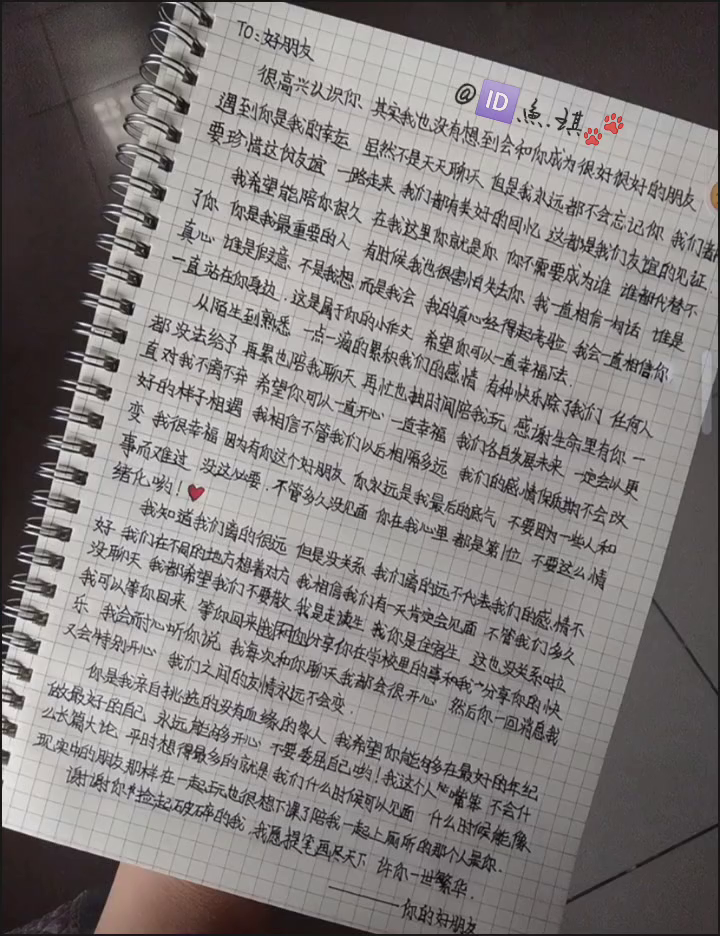 TO:好朋友
@ ID .魚.琪
很高兴认识你 其实我也没有想到会和你成为很好很好的朋友
遇到你是我的幸运 虽然不是天天聊天 但是我永远都不会忘记你 我们都
要珍惜这份友谊 一路走来 我们都有美好的回忆 这都是我们友谊的见证.
我希望能陪你很久 在我这里你就是你 你不需要成为谁 谁都代替不
了你 你是我最重要的人 有时候我也很害怕失去你 我一直相信一句话 谁是
真心 谁是假意 不是我想 而是我会 我的真心经得起考验 我会一直相信你
一直站在你身边 . 这是属于你的小作文 希望你可以一直幸福下去.
从陌生到熟悉 一点一滴的累积我们的感情 有种快乐除了我们 任何人
都没法给予 再累也陪我聊天 再忙也抽时间陪我玩 感谢生命里有你 一
直对我不离不弃 希望你可以一直开心 一直幸福 我们各自发展未来 一定会以更
好的样子相遇 我相信不管我们以后相隔多远 我们的感情保质期不会改
变 我很幸福 因为有你这个好朋友 你永远是我最后的底气 不要因为一些人和
事而难过 没这必要 . 不管多久没见面 你在我心里 都是第1位 不要这么情
绪化哟!
我知道我们离的很远 但是没关系 我们离的远不代表我们的感情不
好 我们在不同的地方想着对方 我相信我们有一天肯定会见面 不管我们多久
没聊天 我都希望我们不要散 我是走读生 我你是住宿生 这也没关系啦
我可以等你回来 等你回来 分享你在学校里的事和我 分享你的快
乐 我会耐心听你说 我每次和你聊天我都会很开心 然后你一回消息我
又会特别开心 我们之间的友情永远不会变 .
你是我亲自挑选的没有血缘的家人 我希望你能够在最好的年纪
做最好的自己 永远能够开心 不要委屈自己哟!我这个人 嘴笨 不会什
么长篇大论 平时想得最多的就是 我们什么时候可以见面 什么时候能像
现实中的朋友那样在一起玩也很想下课了陪我一起上厕所的那个人是你.
谢谢你 捡起破碎的我 我愿提笔画尽天下 许你一世繁华 .
———你的好朋友